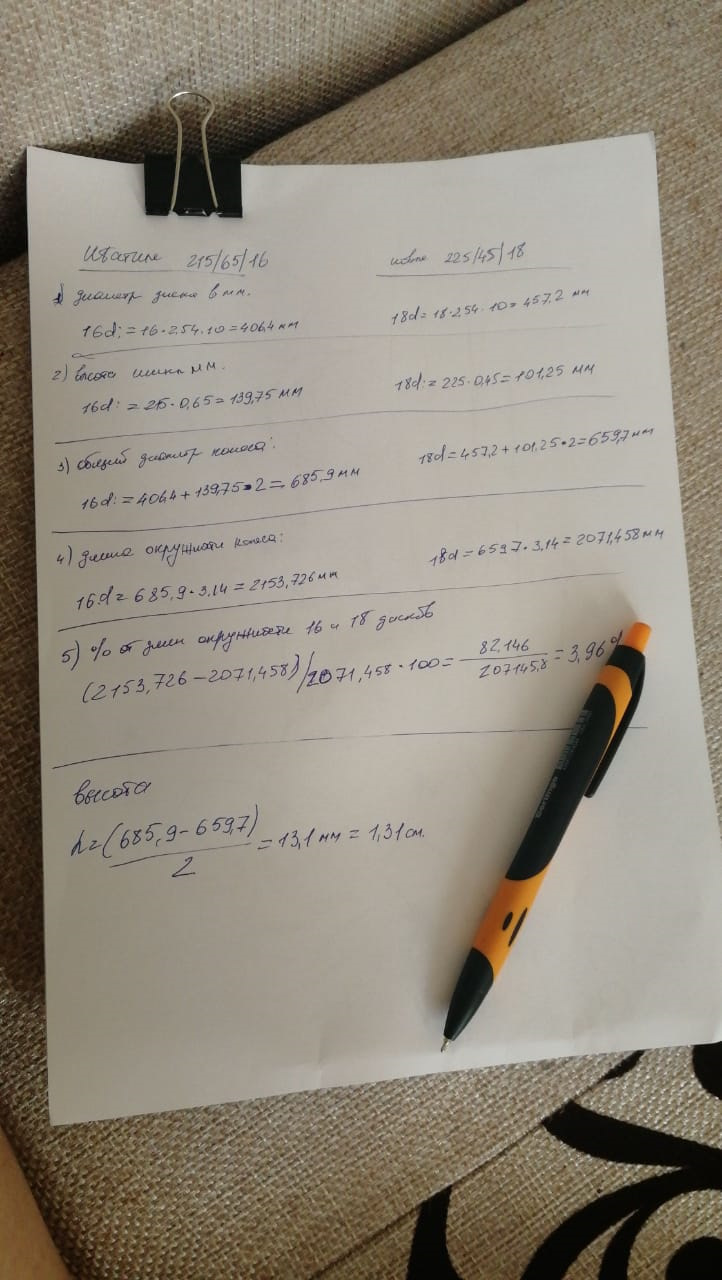 штатные 215/65/16
новые 225/45/18
1) диаметр диска в мм.
16d: = 16·2,54·10 = 406,4 мм
18d = 18·2,54·10 = 457,2 мм
2) высота шины мм.
16d: = 215·0,65 = 139,75 мм
18d: = 225·0,45 = 101,25 мм
3) общий диаметр колеса:
16d: = 406,4 + 139,75·2 = 685,9 мм
18d = 457,2 + 101,25·2 = 659,7 мм
4) длина окружности колеса:
16d = 685,9·3,14 = 2153,726 мм
18d = 659,7·3,14 = 2071,458 мм
5) % от длин окружности 16 и 18 дисков
(2153,726 – 2071,458)/2071,458·100 = 82,146/207145,8 = 3,96%
высота
h = (685,9 – 659,7)/2 = 13,1 мм = 1,31 см.